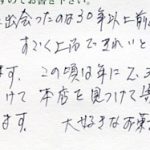 出会ったのは30年以上前
すごく上品できれいと
ます。この頃は年に2、3
けて本店を見つけて
ます。 大好きなお菓